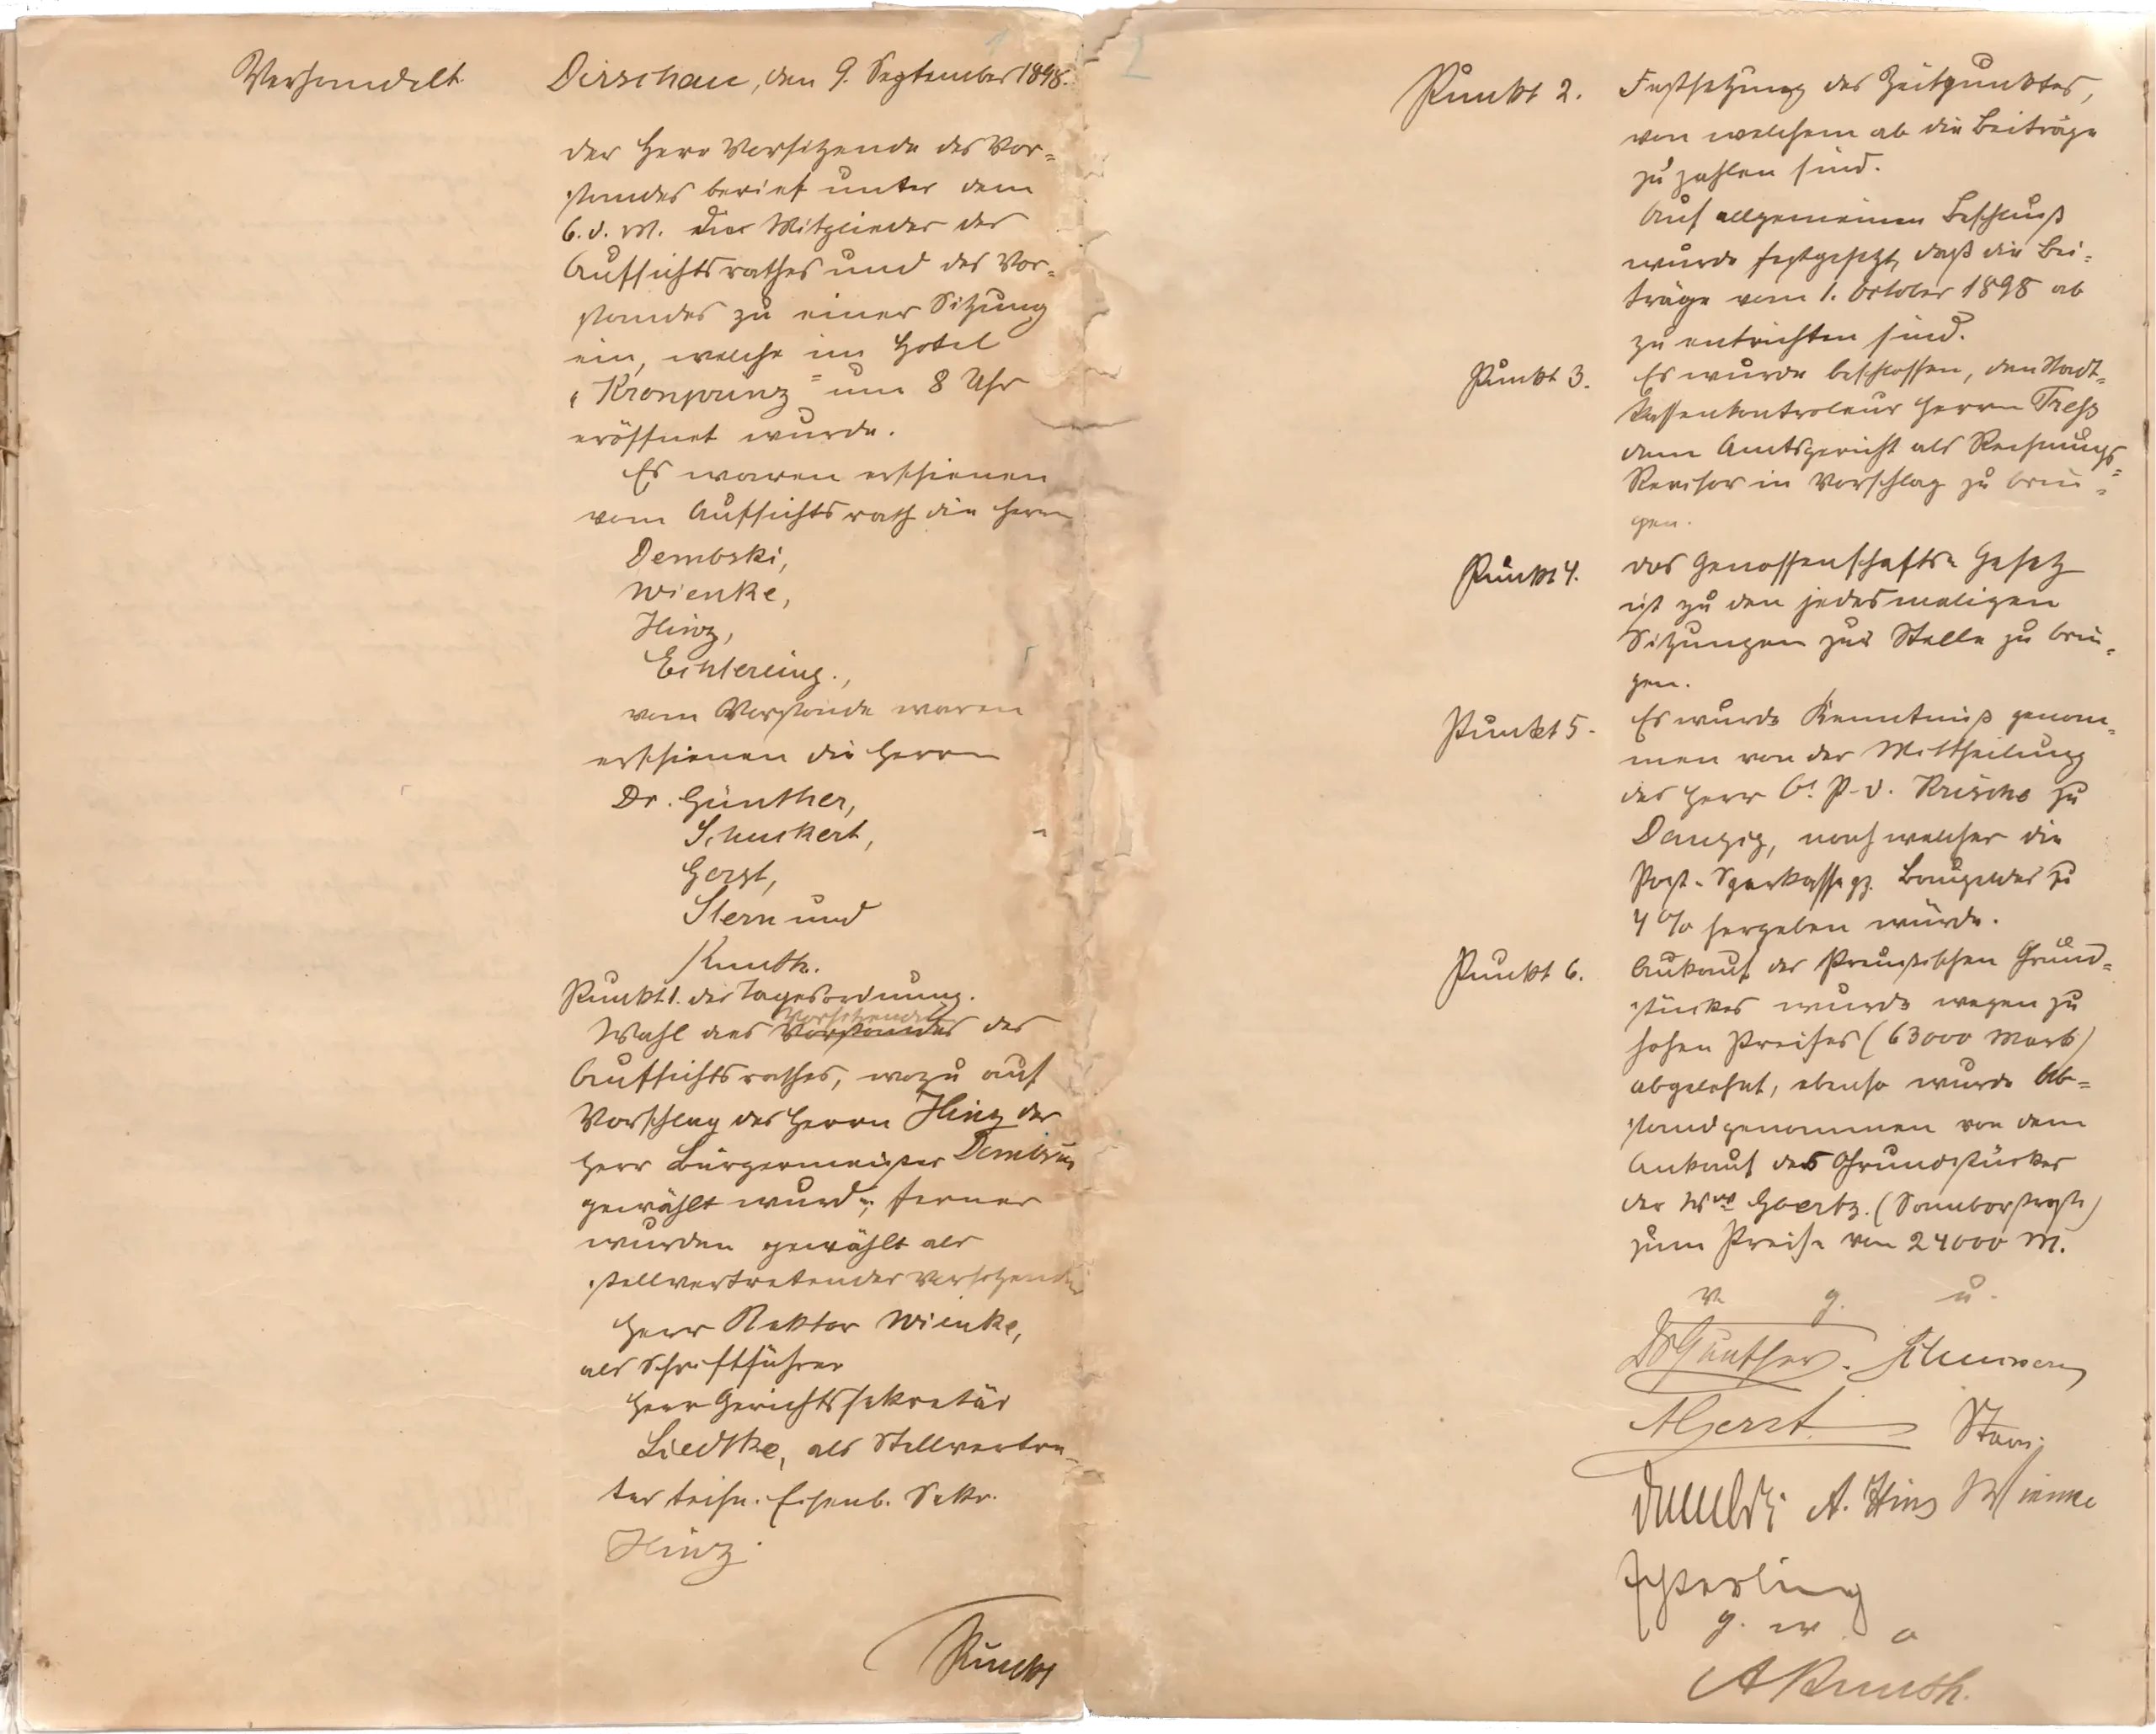 Verhandelt Dirschau, den 9. September 1898.
der Herr Vorsitzende des Vor-
standes berief unter dem
6. d. M. die Mitglieder des
Aufsichtsrathes und des Vor-
standes zu einer Sitzung
ein, welche im Hotel
„Kronprinz" um 8 Uhr
eröffnet wurde.
Es waren erschienen
vom Aufsichtsrath die Herrn
Dembski,
Wienke,
Hinz,
Echterling.,
vom Vorstande waren
erschienen die Herrn
Dr. Günther,
Schuckert,
Gerst,
Stern und
Knuth.
Punkt 1. der Tagesordnung.
Vorsitzenden
Wahl des Vorstandes des
Aufsichtsrathes, wozu auf
Vorschlag des Herrn Hinz der
Herr Bürgermeister Dembski
gewählt wurde; ferner
wurden gewählt als
stellvertretender Vorsitzender
Herr Rektor Wienke,
als Schriftführer
Herr Gerichtssekretär
Liedtke, als Stellvertre-
ter Eisenb. Sekr.
Hinz.
Punkt
Punkt 2. Festsetzung des Zeitpunktes,
von welchem ab die Beiträge
zu zahlen sind.
Auf allgemeinen Beschluß
wurde festgesetzt, daß die Bei-
träge vom 1. October 1898 ab
zu entrichten sind.
Punkt 3. Es wurde beschlossen, den Stadt-
kassenkontroleur Herrn Tresp
dem Amtsgericht als Rechnungs-
Revisor in Vorschlag zu brin-
gen.
Punkt 4. das Genossenschafts-Gesetz
ist zu den jedesmaligen
Sitzungen zur Stelle zu brin-
gen.
Punkt 5. Es wurde Kenntniß genom-
men von der Mittheilung
des Herr O. P. D. zu
Danzig, nach welcher die
Post-Sparkasse Baugelder zu
4 % hergeben würde.
Punkt 6. Ankauf des Preußischen Grund-
stückes wurde wegen zu
hohen Preises (63000 Mark)
abgelehnt, ebenso wurde Ab-
stand genommen von dem
Ankauf des Grundstückes
der Wwe Goertz. (Sambor straße)
zum Preise von 24000 M.
v. g. u.
Dr Günther. Schuckert
A Gerst. Stern.
Dembski A. Hinz Wienke
Echterling
g. w. o
A Knuth.